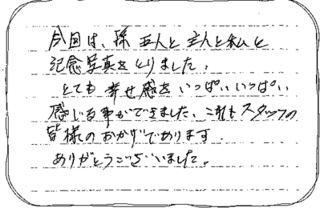 今回は、孫 五人と 主人と私と
記念写真をとりました。
とても 幸せ感を いっぱい いっぱい
感じる事ができました、これもスタッフの
皆様のおかげであります
ありがとうございました。